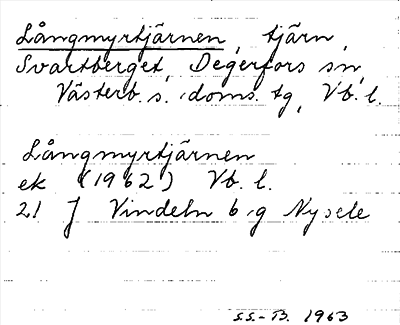 Långmyrtjärnen, tjärn,
Svartberget, Degerfors sn,
Västerb. s. doms. tg, Vb. l.
Långmyrtjärnen
ek (1962) Vb. l.
21 J Vindeln b ig Nysele
S.S.-B. 1963